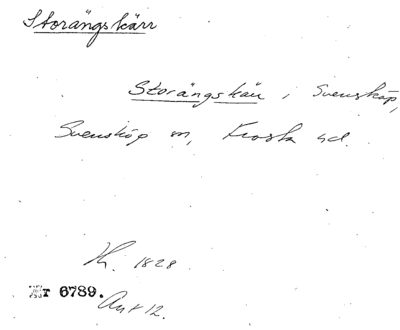 Storängskärr
Storängskärr i Svensköp,
Svensköp sn, Frosta hd.
1828
6789.
12.